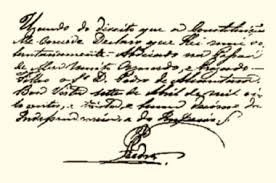 Usando do direito que a Constituição
Me concede Declaro que Hei mui vo-
luntariamente Abdicado na Pessoa
de Meu Muito Amado e Prezado
Filho o Sr. D. Pedro de Alcantara
Boa Vista sete de Abril de mil oito
centos e trinta e hum decimo da
Independencia e do Imperio
Pedro